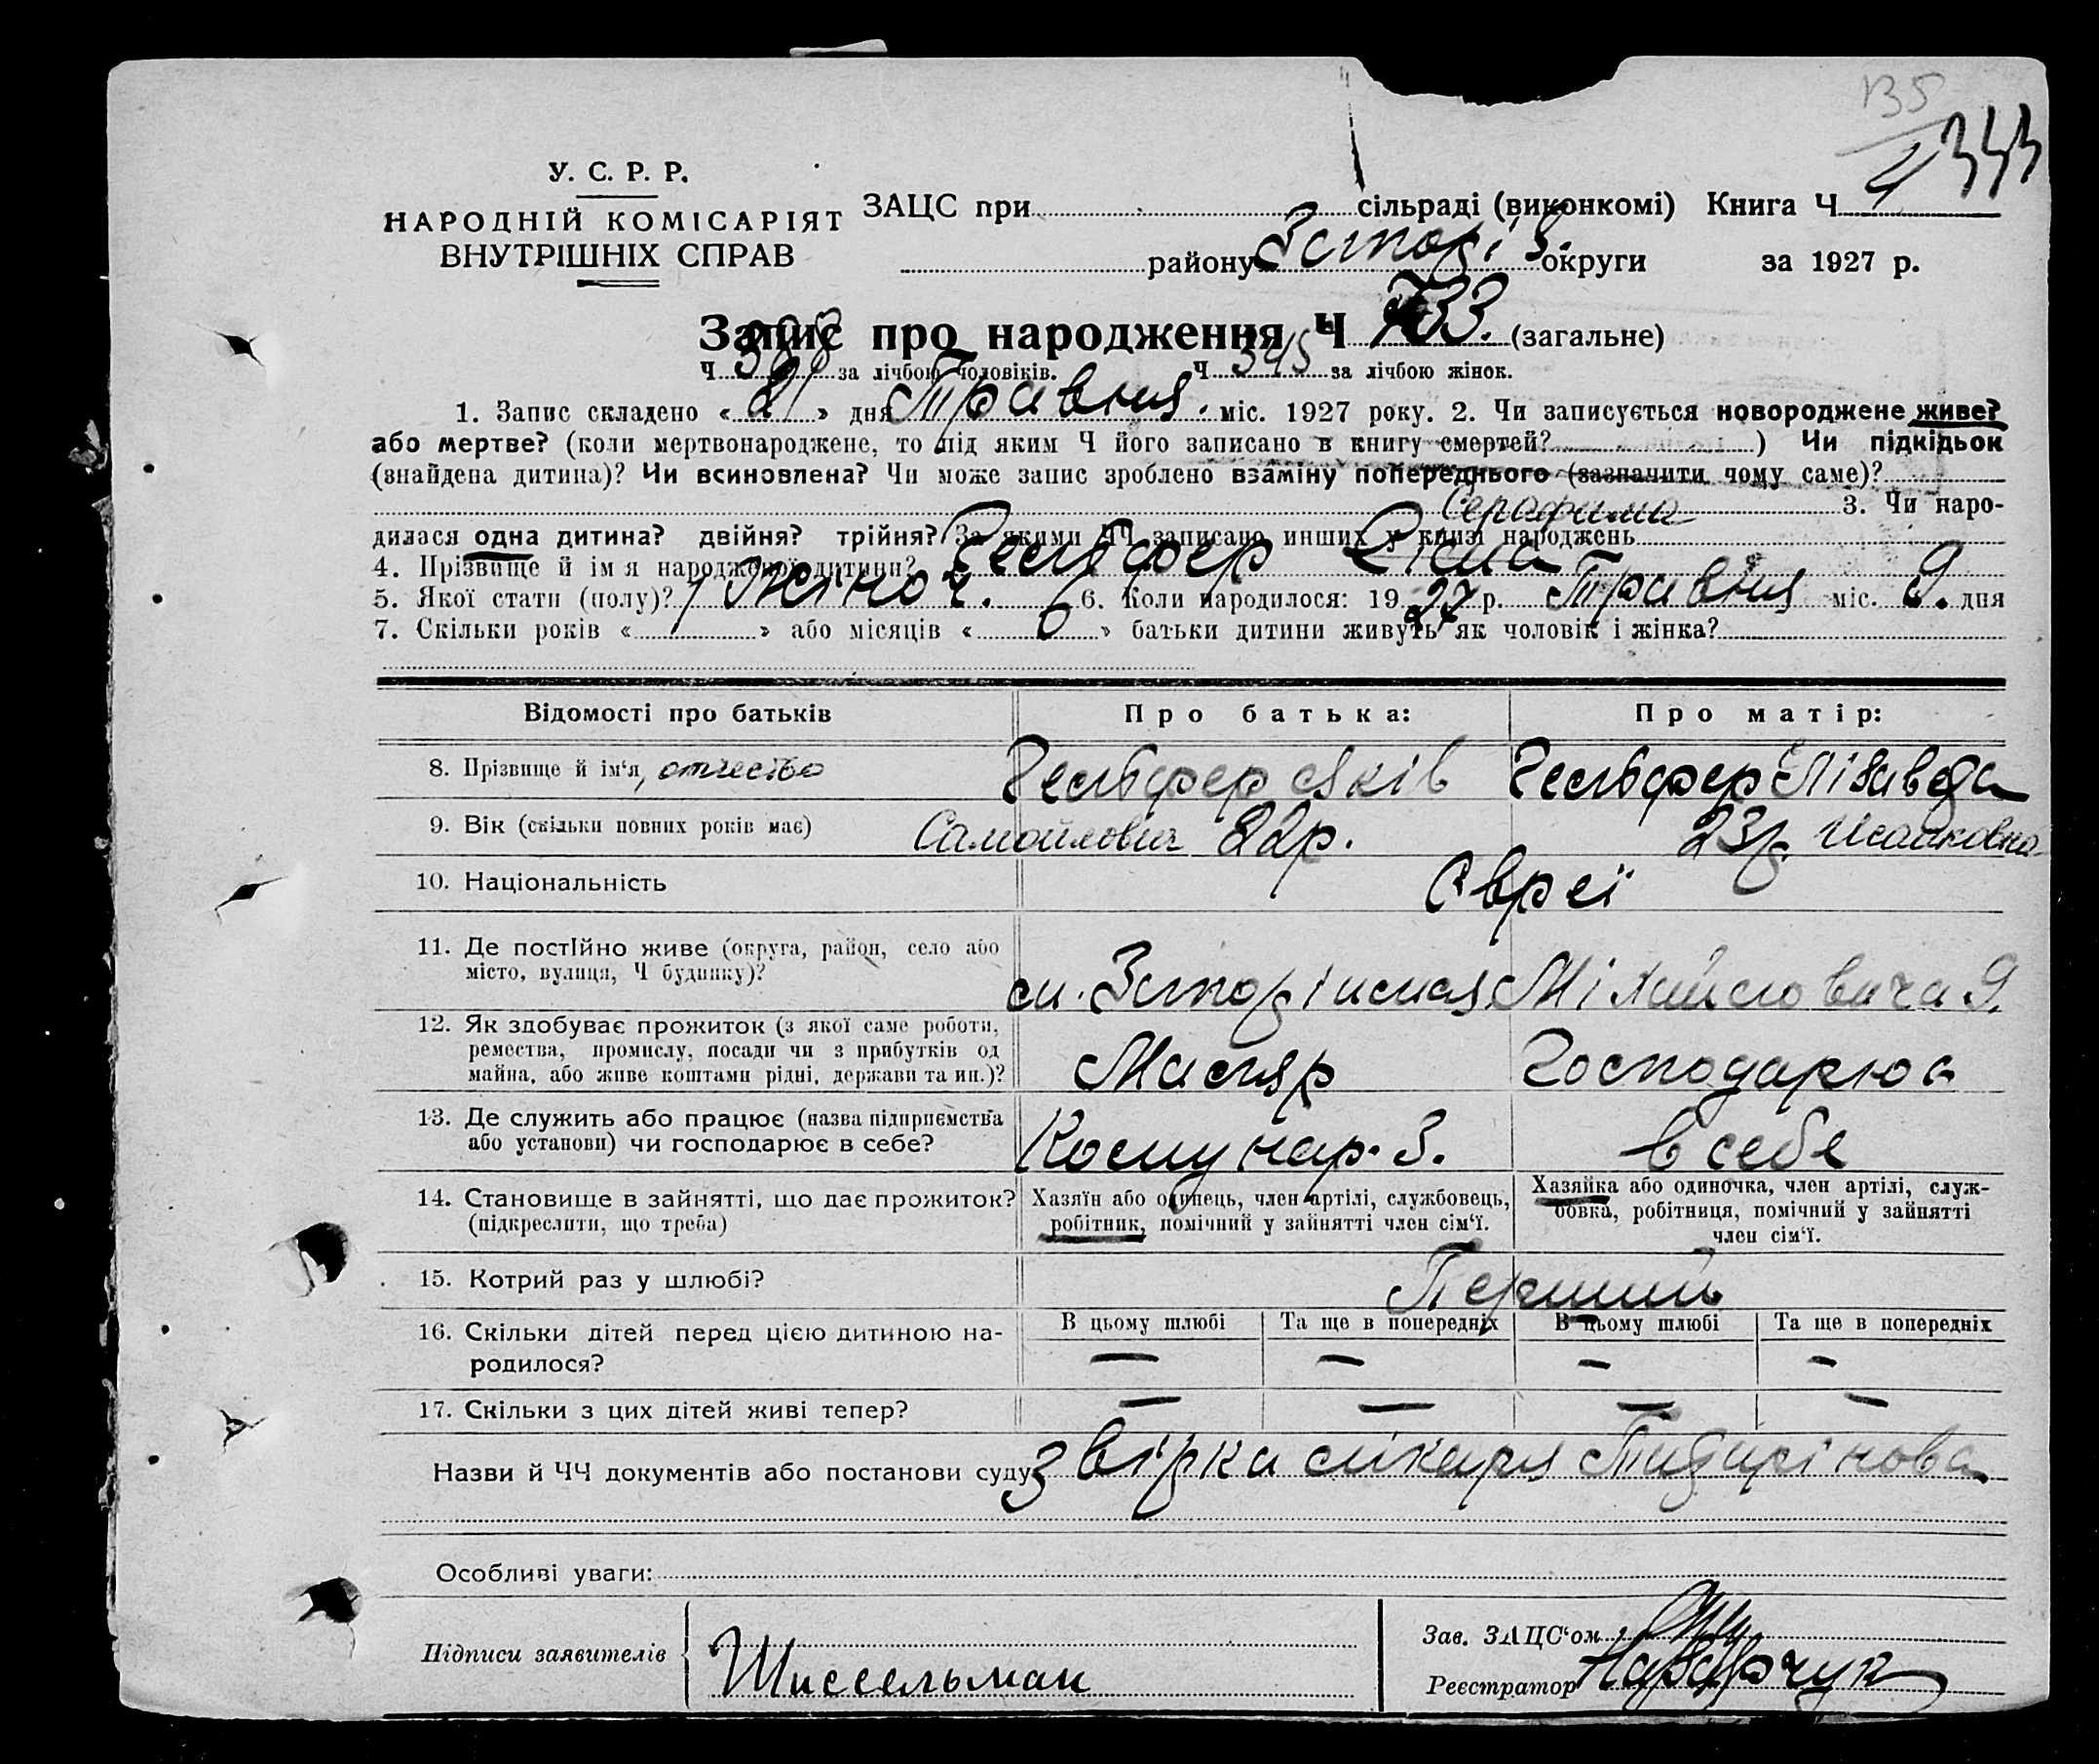 135
4 343
У. С. Р. Р.
НАРОДНІЙ КОМІСАРІЯТ
ВНУТРІШНІХ СПРАВ
ЗАЦС при сільраді (виконкомі) Книга Ч
району округи за 1927 р.
Запис про народження Ч 733. (загальне)
Ч за лічбою чоловіків. Ч 345 за лічбою жінок.
1. Запис складено « 21 » дня Травня. міс. 1927 року. 2. Чи записується новороджене живе?
або мертве? (коли мертвонароджене, то під яким Ч його записано в книгу смертей? ) Чи підкідьок
(знайдена дитина)? Чи всиновлена? Чи може запис зроблено взаміну попереднього (зазначити чому саме)?
Серафима 3. Чи наро-
дилася одна дитина? двійня? трійня? За якими ЧЧ записано инших у книзі народжень
4. Прізвище й імя народженої дитини? Гельфер
5. Якої стати (полу)? Жіноч. 6. Коли народилося: 1927 р. Травня міс. 9. дня
7. Скільки років « » або місяців « 6 » батьки дитини живуть як чоловік і жінка?
Відомості про батьків Про батька: Про матір:
8. Прізвище й ім‘я, отчество Гельфер Яків Гельфер Елізавета
9. Вік (скільки повних років має) Самойлович 22р. 23р. Исааковна
10. Національність Євреї
11. Де постійно живе (округа, район, село або
місто, вулиця, Ч будинку)? Міхайловича 9.
12. Як здобуває прожиток (з якої саме роботи,
ремества, промислу, посади чи з прибутків од
майна, або живе коштами рідні, держави та ин.)? Маляр Господарює
13. Де служить або працює (назва підприємства
або установи) чи господарює в себе? Комунар. З. в себе
14. Становище в зайнятті, що дає прожиток?
(підкреслити, що треба)
Хазяїн або одинець, член артілі, службовець,
робітник, помічний у зайнятті член сім‘ї.
Хазяйка або одиночка, член артілі, служ-
бовка, робітниця, помічний у зайнятті
член сім‘ї.
15. Котрий раз у шлюбі? Перший
16. Скільки дітей перед цією дитиною на-
родилося?
В цьому шлюбі Та ще в попередніх В цьому шлюбі Та ще в попередніх
— — — —
17. Скільки з цих дітей живі тепер? — — — —
Назви й ЧЧ документів або постанови суду звірка лікаря
Особливі уваги:
Підписи заявителів Шиссельман
Зав. ЗАЦС‘ом
Реєстратор Назарчук